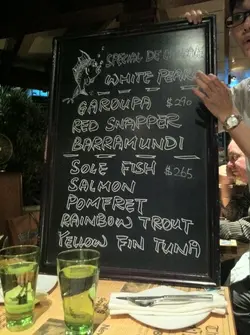 SPECIAL DE
WHITE
GAROUPA $290
RED SNAPPER
BARRAMUNDI
SOLE FISH $265
SALMON
POMFRET
RAINBOW TROUT
YELLOW FIN TUNA